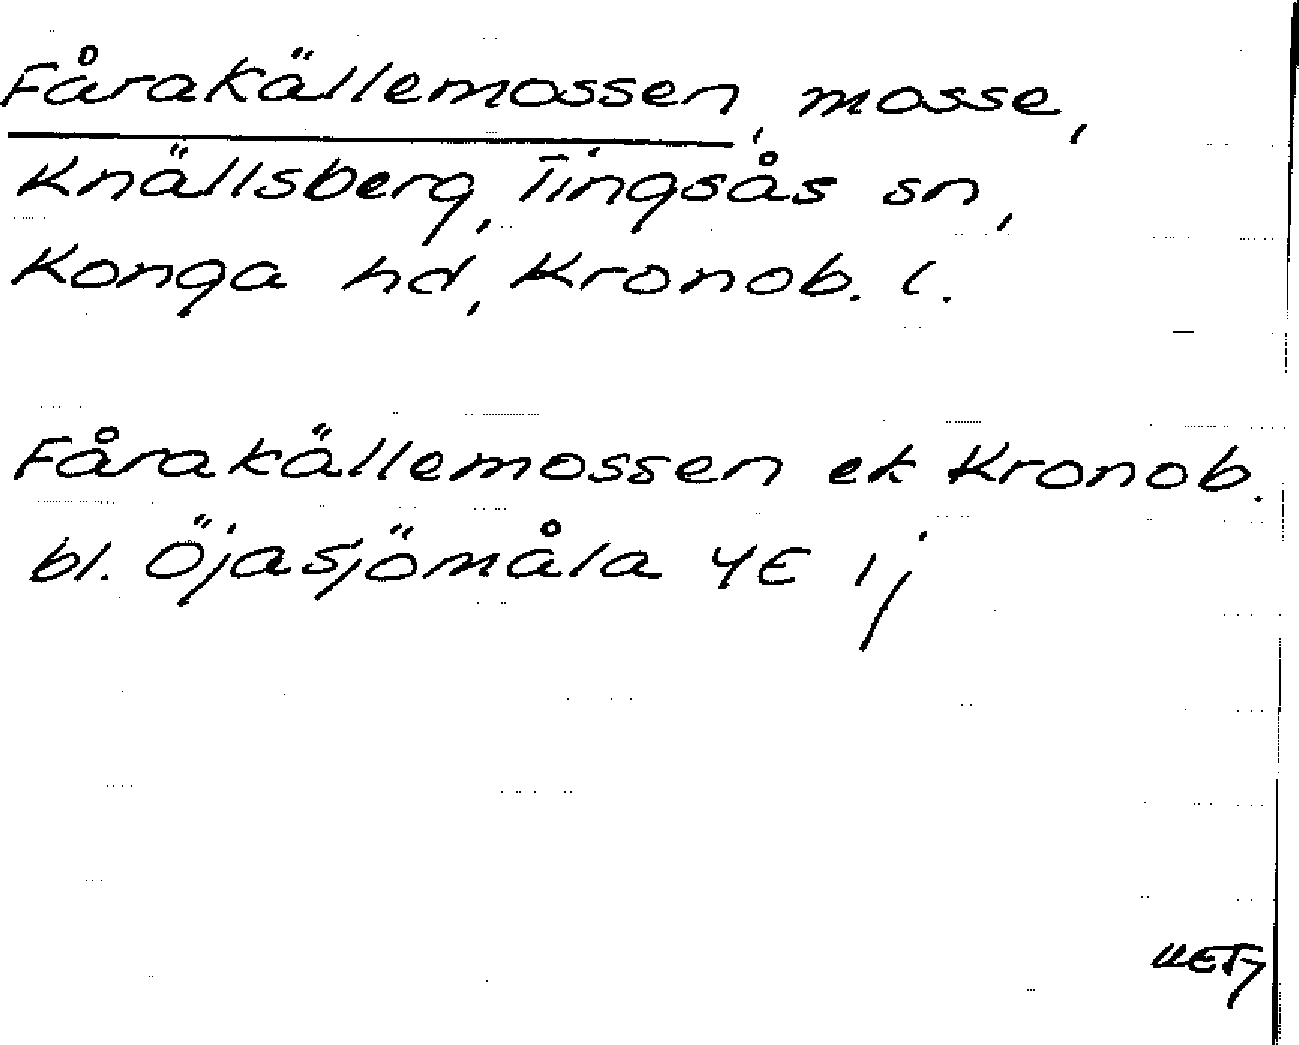 Fårakällemossen, mosse,
Knällsberg, Tingsås sn,
Konga hd, Kronob. l.
Fårakällemossen ek Kronob.
bl. Öjasjömåla 4E ij